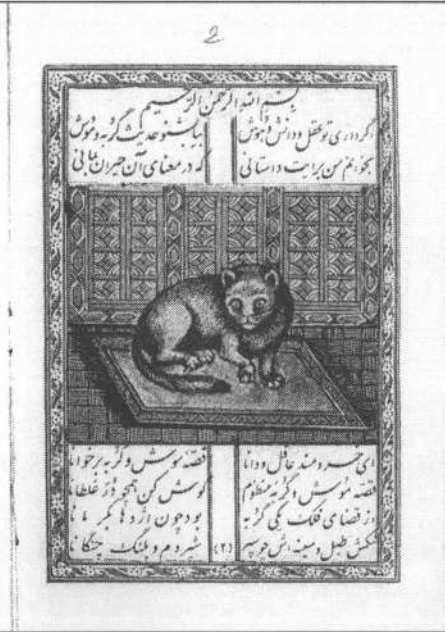 2
بسم الله الرحمن الرحیم
اگر داری تو عقل و دانش و هوش بیا بشنو حدیث گربه و موش
بخوانم من برایت داستانی که در معنای آن حیران بمانی
ای خردمند عاقل و دانا قصه موش و گربه برخوانا
قصه موش و گربه منظوم گوش کن همچو در غلطانا
از قضای فلک یکی گربه بود چون اژدها بکرمانا
شکمش طبل و سینه اش چو سپر (۲) شیر دم و پلنک چنگانا